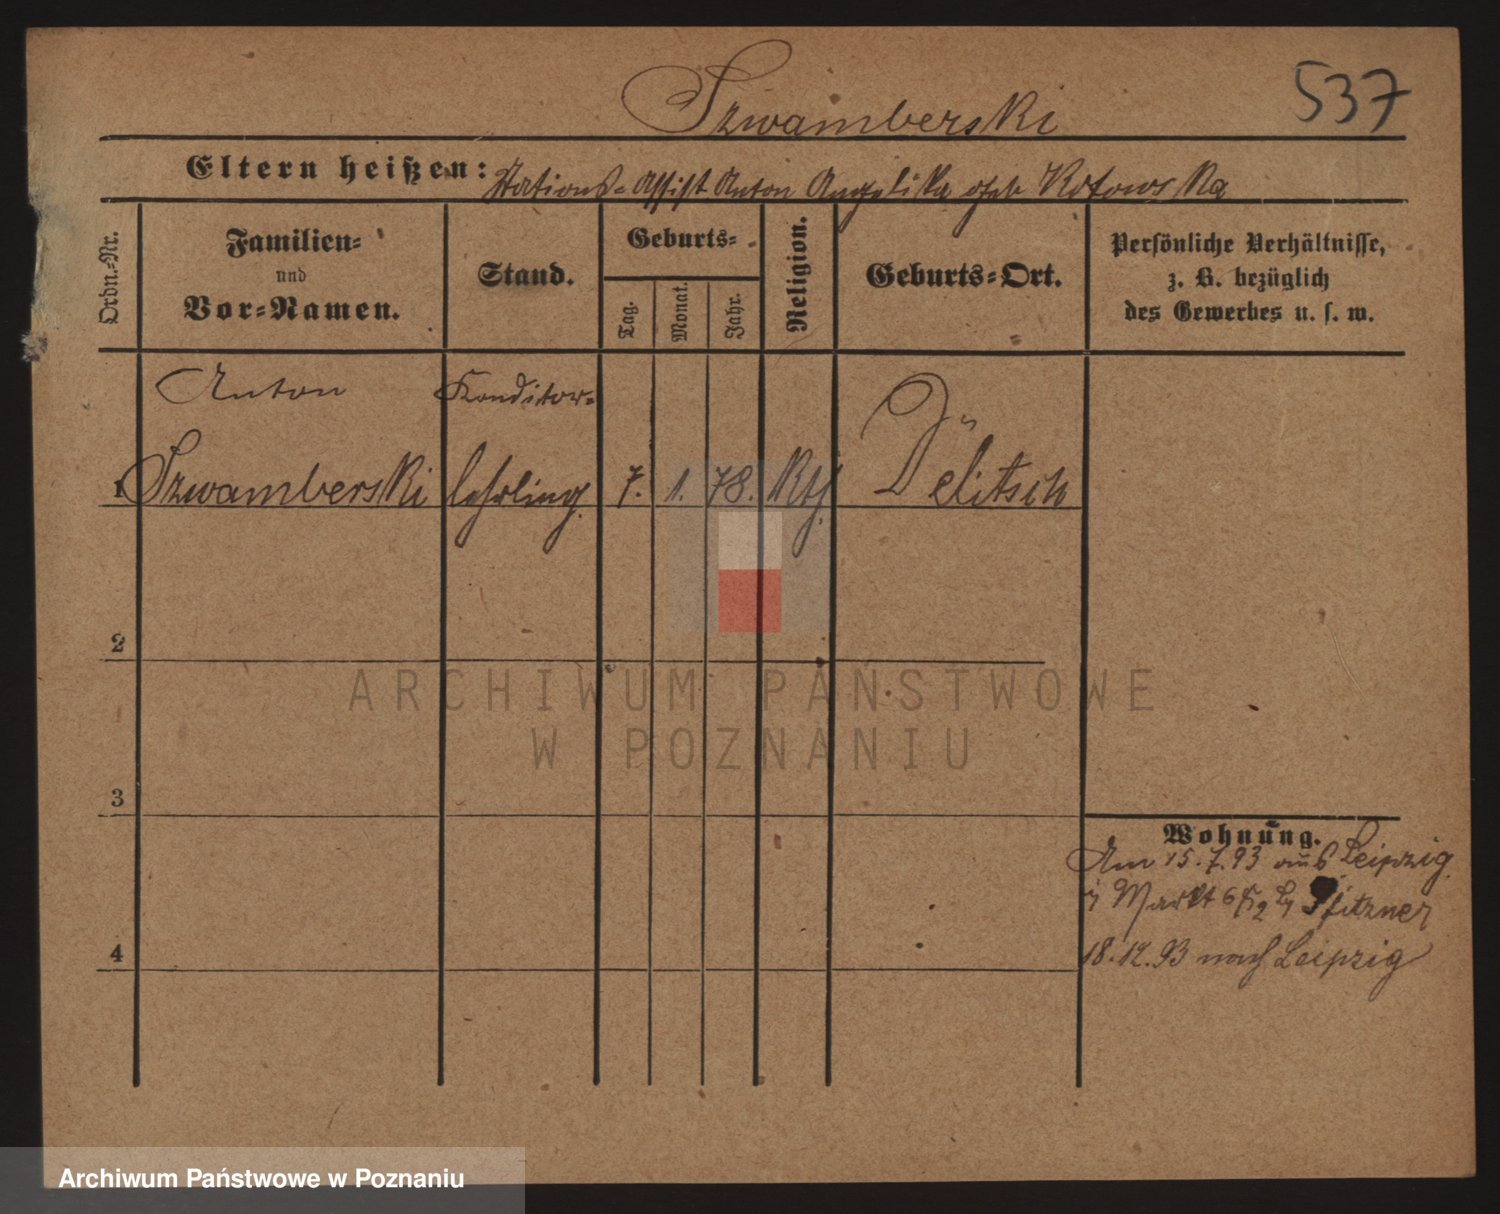 Szwamberski
537
Eltern heißen: Stations-Assist. Anton Angelika geb Kotowska
Ordn.-Nr.
Familien-
und
Vor-Namen.
Stand.
Geburts-
Tag.
Monat.
Jahr.
Religion.
Geburts-Ort.
Persönliche Verhältnisse,
z. B. bezüglich
des Gewerbes u. s. w.
Anton Konditor-
1 Szwamberski lehrling. 7. 1. 78. Kth. Delitsch
2
3
4
Wohnung.
Am 15.7.93 aus Leipzig
Markt 6 Pfitzner
18.12.93 nach Leipzig
ARCHIWUM PAŃSTWOWE
W POZNANIU
Archiwum Państwowe w Poznaniu